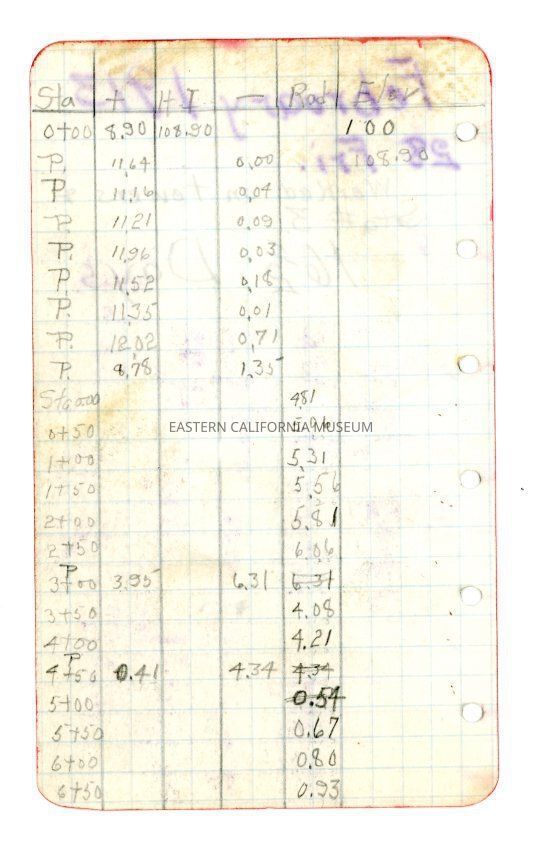 Sta + H I — Rod Elev
0+00 8.90 108.90 100
P. 11.64 0.00 108.90
P 11.16 0.04
P. 11.21 0.09
P. 11.96 0.03
P. 11.52 0.18
P. 11.35 0.01
P. 12.02 0.71
P. 8.78 1.35
Sta 0+00 4.81
0+50
EASTERN CALIFORNIA MUSEUM
1+00 5.31
1+50 5.56
2+00 5.81
2+50 6.06
P
3+00 3.95 6.31 6.31
3+50 4.08
4+00 4.21
P
4+50 0.41 4.34 4.34
5+00 0.54
5+50 0.67
6+00 0.80
6+50 0.93